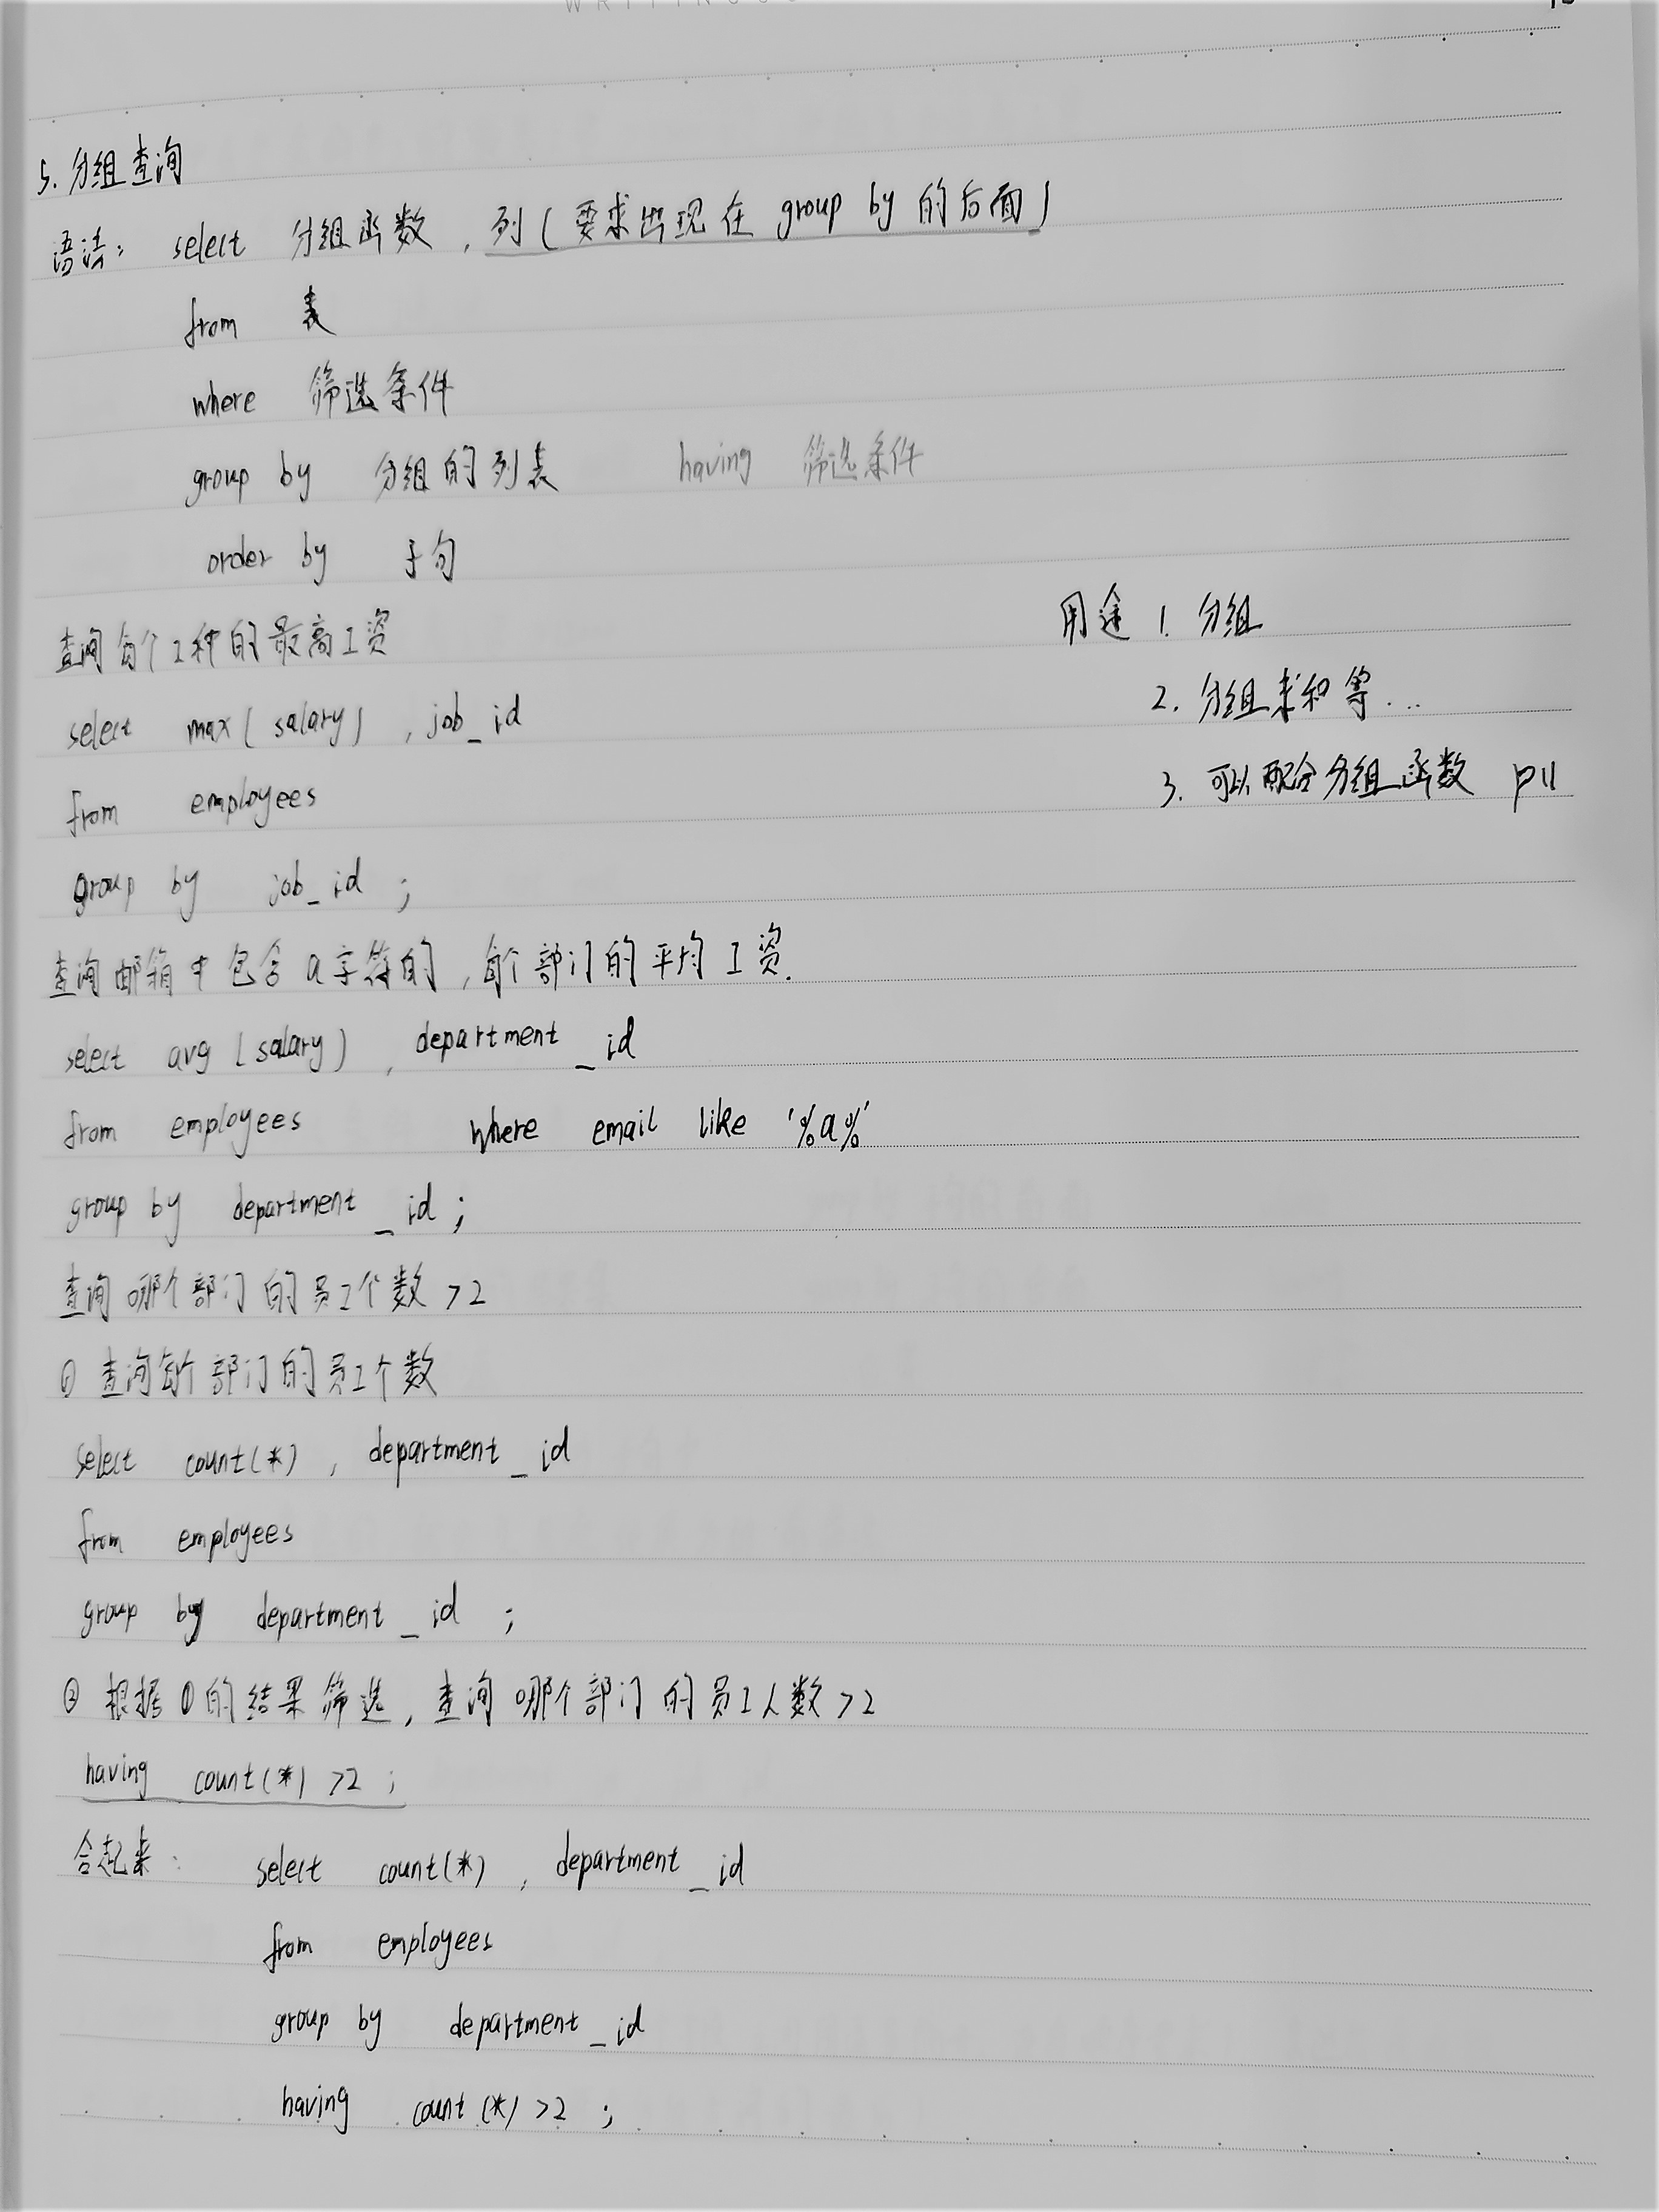 5. 分组查询
语法: select 分组函数, 列(要求出现在 group by 的后面)
from 表
where 筛选条件
group by 分组的列表 having 筛选条件
order by 子句
用途 1. 分组
查询每个工种的最高工资
2. 分组求和等...
select max(salary), job_id
3. 可以配合分组函数 P11
from employees
group by job_id;
查询邮箱中包含a字符的, 每个部门的平均工资.
select avg(salary), department_id
from employees where email like '%a%'
group by department_id;
查询哪个部门的员工个数>2
① 查询每个部门的员工个数
select count(*), department_id
from employees
group by department_id;
② 根据①的结果筛选, 查询哪个部门的员工人数>2
having count(*)>2;
合起来: select count(*), department_id
from employees
group by department_id
having count(*)>2;